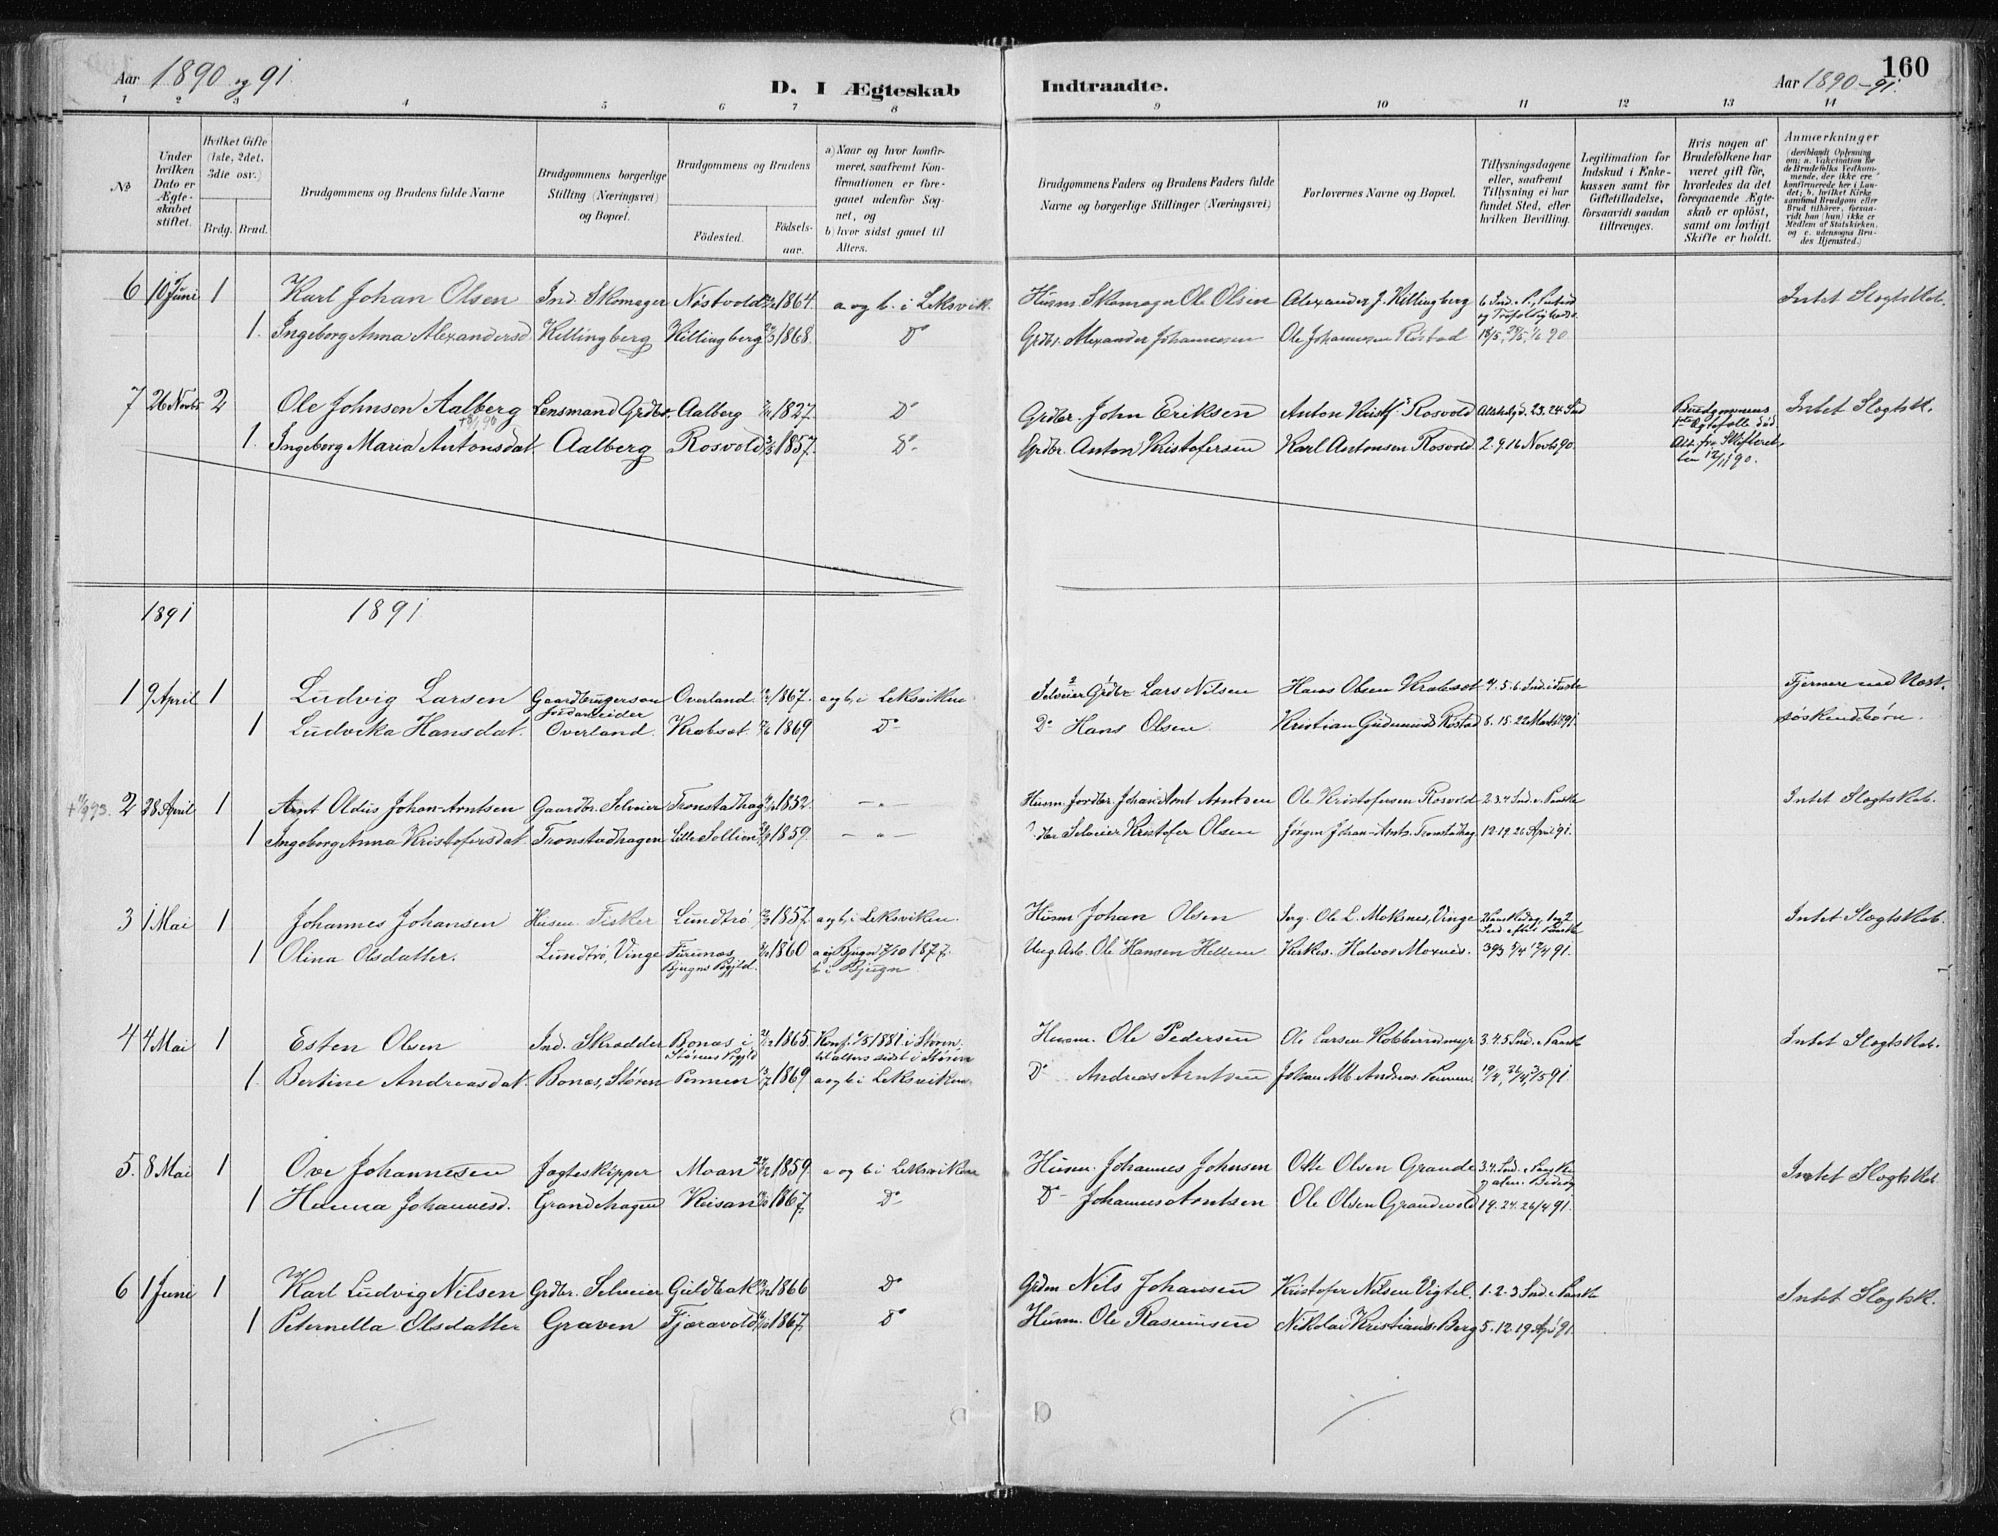 Aar 1890 og 91.
D. I Ægteskab
Indtraadte.
Aar 1890-91.
160
1 2 3 4 5 6 7 8 9 10 11 12 13 14
No
Under hvilken Dato er Ægteskabet stiftet.
Hvilket Gifte (1ste, 2det, 3die osv.)
Brdg. Brud.
Brudgommens og Brudens fulde Navne
Brudgommens borgerlige Stilling (Næringsvei) og Bopæl.
Brudgommens og Brudens
Fødested.
Fødselsaar.
a) Naar og hvor konfirmeret, saafremt Konfirmationen er foregaaet udenfor Sognet, og
b) hvor sidst gaaet til Alters.
Brudgommens Faders og Brudens Faders fulde Navne og borgerlige Stillinger (Næringsvei)
Forlovernes Navne og Bopæl.
Tillysningsdagene eller, saafremt Tillysning ei har fundet Sted, efter hvilken Bevilling.
Legitimation for Indskud i Enkekassen samt for Giftetilladelse, forsaavidt saadan tiltrænges.
Hvis nogen af Brudefolkene har været gift før, hvorledes da det foregaaende Ægteskab er opløst, samt om lovligt Skifte er holdt.
Anmærkninger
(deriblandt Oplysning om: a. Vakcination for de Brudefolks Vedkommende, der ikke ere konfirmerede her i Landet; b. hvilket Kirkesamfund Brudgom eller Brud tilhører, forsaavidt han (hun) ikke er Medlem af Statskirken, og c. udensogns Brudes Hjemsted.)
6 10 Juni 1 Karl Johan Olsen Ind. Skomager Nøstvold 1864. a og b. i Leksvik. Husm. Skomager Ole Olsen Alexander J. Killingberg Intet Slegtskab.
1. Ingeborg Anna Alexandersd. Killingberg Killingberg 1868. Do Grdbr. Alexander Johannesen Ole Johannesen Røstad 18/5, 25/5, 1/6 90.
7 26 Novbr 2 Ole Johnsen Aalberg Lensmand Grdbr. Aalberg 1827. Do Grdbr. John Eriksen Anton Kristf. Rosvold 23. 24. Snd Brudgommens 1ste Ægtefælle død Intet Slegtsk.
1. Ingeborg Maria Antonsdat. Aalberg Rosvold 1857. Do Grdbr. Anton Kristofersen Karl Antonsen Rosvold 2. 9. 16 Novbr 90. Att. fra Skifteretten 12/11 90.
1891 1891
1 9 April 1 Ludvig Larsen Gaardbrugersøn Overland 1867. a og b. i Leksviken Selveier Grdbr Lars Nilsen Hans Olsen Krabsæt 4. 5. 6. Snd i Faste Fjernere end Næst-
1 Ludvika Hansdat. Overland. Krabsæt 1869 Do Do Hans Olsen Kristian Gudmunds. Røstad 8. 15. 22 Marts 91. søskendebørn.
2 28 April 1 Arnt Oldus Johan-Arntsen Gaardbr. Selveier Tronstadhag 1852. Husm. Jordbr. Johan Arnt Arntsen Ole Kristofersen Rosvold 2. 3. 4 Snd e. Paaske Intet Slegtskab.
1 Ingeborg Anna Kristofersdat. Tronstadhagen Lille Sollien 1859. Selveier Kristofer Olsen Jørgen Johan-Arnts. Tronstadhag 12. 19. 26 April 91.
3 1 Mai 1 Johannes Johansen Husm. Fisker Lundtrø 1857. a og b. i Leksviken. Husm Johan Olsen Ole L. Moksnes, Vinge Intet Slegtskab.
1 Olina Olsdatter. Lundtrø, Vinge Furunes, Bjugns Pgjld. 1860 a i Bjugn 7/10 1877. b i Bjugn Ung. Arb. Ole Hansen Hellem Kirkes. Halvor Moxnes.
4 4 Mai 1 Esten Olsen Ind. Skrædder Bonæs i Størens Pgjld 1865. Konf. 1881. i Støren, til alters sidst i Støren Husm. Ole Pedersen Ole Larsen 3. 4. 5. Snd. e. Paaske Intet Slegtskab.
1. Bertine Andreasdat. Bonæs, Støren Pennen 1869 a og b. i Leksviken. Do Andreas Arntsen Johan Alb. Andreas. Pennen. 19/4, 26/4, 3/5 91.
5. 8 Mai 1 Ove Johannesen Jægteskipper Moan 1859. a og b i Leksviken Husm. Johannes Johnsen Otte Olsen Grande Intet Slegtskab.
1 Hanna Johannesd. Grandehagen Keisan 1867. Do Do Johannes Arntsen Ole Olsen Grandevold 19. 24. 26/4 91.
6 1 Juni 1 Karl Ludvig Nilsen Grdbr. Selveier Guldbak 1866 Do Grdm Nils Johansen Kristofer Nilsen Vigtel. 1. 2. 3 Snd e. Paaske Intet Slegtsk.
1 Peternella Olsdatter Graven Fjæravold 1867. Do Husm. Ole Rasmussen Nikolai Kristians. Berg 5. 12. 19 Apr 91.